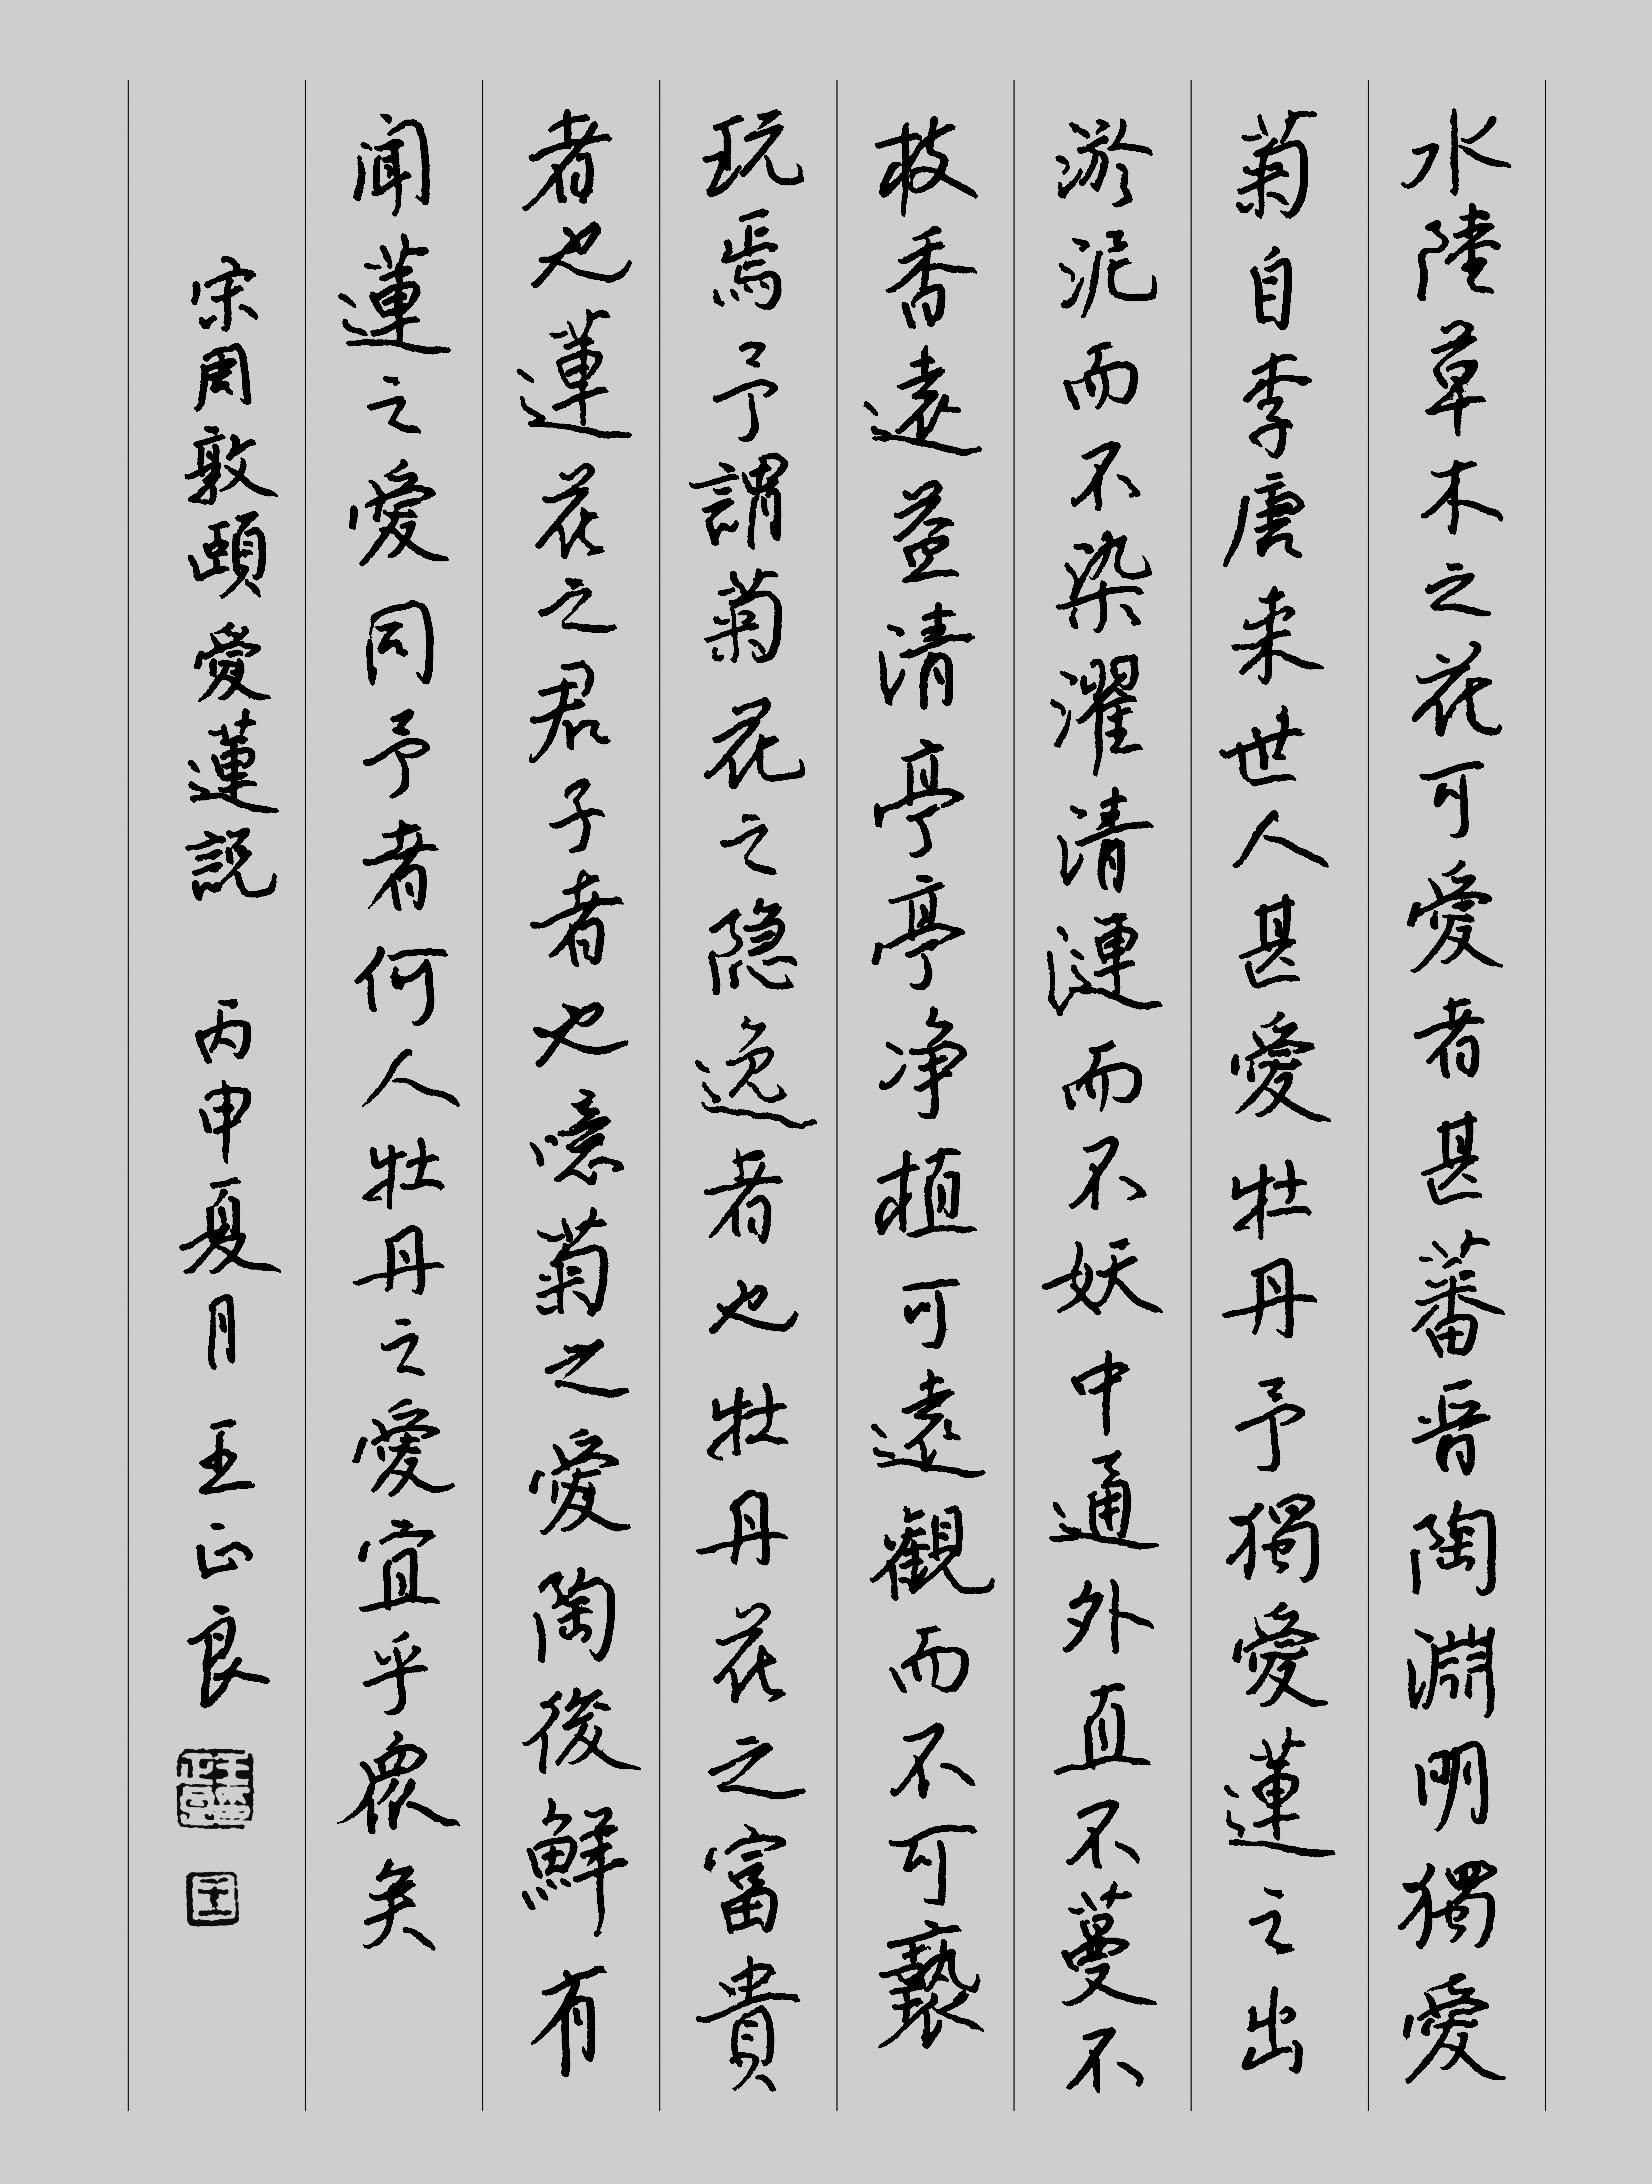 水陸草木之花可愛者甚蕃晋陶淵明獨愛
菊自李唐来世人甚愛牡丹予獨愛蓮之出
淤泥而不染濯清漣而不妖中通外直不蔓不
枝香遠益清亭亭净植可遠觀而不可褻
玩焉予謂菊花之隐逸者也牡丹花之富貴
者也蓮花之君子者也噫菊之愛陶後鮮有
闻蓮之愛同予者何人牡丹之愛宜乎眾矣
宋周敦頤愛蓮説 丙申夏月 王正良
王